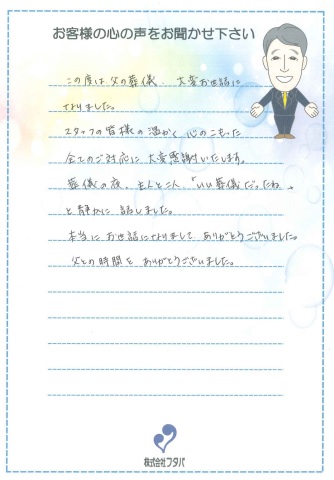 お客様の心の声をお聞かせ下さい
この度は父の葬儀、大変お世話に
なりました。
スタッフの皆様の温かく心のこもった
全てのご対応に大変感謝いたします。
葬儀の夜、主人と二人、“いい葬儀だったね„
と静かに話しました。
本当にお世話になりまして、ありがとうございました。
父との時間をありがとうございました。
株式会社フタバ